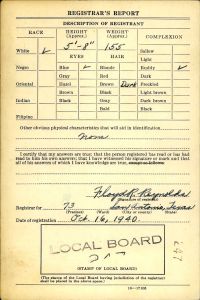 REGISTRAR'S REPORT
DESCRIPTION OF REGISTRANT
RACE HEIGHT (Approx.) WEIGHT (Approx.) COMPLEXION
White ✓ 5'-8" 155 Sallow
EYES HAIR Light
Negro Blue ✓ Blonde Ruddy ✓
Gray Red Dark
Oriental Hazel Brown Dark Freckled
Brown Black Light brown
Indian Black Gray Dark brown
Bald Black
Filipino
Other obvious physical characteristics that will aid in identification
None
I certify that my answers are true; that the person registered has read or has had
read to him his own answers; that I have witnessed his signature or mark and that
all of his answers of which I have knowledge are true, except as follows:
Floyd R. Reynolds
(Signature of registrar)
Registrar for 73 San Antonio, Texas
(Precinct) (Ward) (City or county) (State)
Date of registration Oct. 16, 1940.
LOCAL BOARD
(STAMP OF LOCAL BOARD)
(The stamp of the Local Board having jurisdiction of the registrant
shall be placed in the above space.)